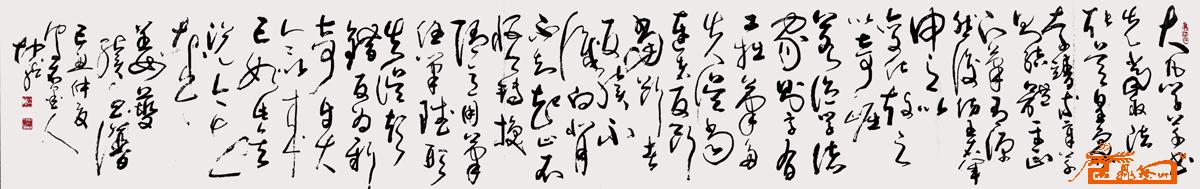 大凡学草书
先当取法
张芝皇象
索靖等章草
则结体平正
下笔有源
然后仿王右军
申之以
变化鼓之
以奇崛
若泛学诸
家则字有
工拙笔多
失误当
连者反断
当断者
反续不
识向背
不知起止不
悟转换
随意用笔
任笔赋形
失误颠
错反为新
奇自大
令以来
已如此矣
况今世
哉
姜夔
续书谱
己丑仲夏